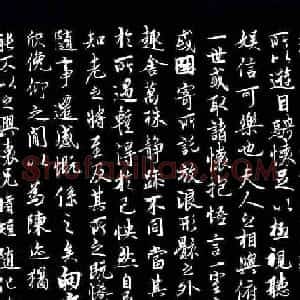 所以遊目騁懷足以極視聽
娛信可樂也夫人之相與俯
一世或取諸懷抱悟言室
或因寄所託放浪形骸之外
趣舍萬殊靜躁不同當其
於所遇暫得於己怏然自
知老之將至及其所之既惓
隨事遷感慨係之矣向
俛仰之間以為陳迹猶
能不以之興懷況脩短隨化